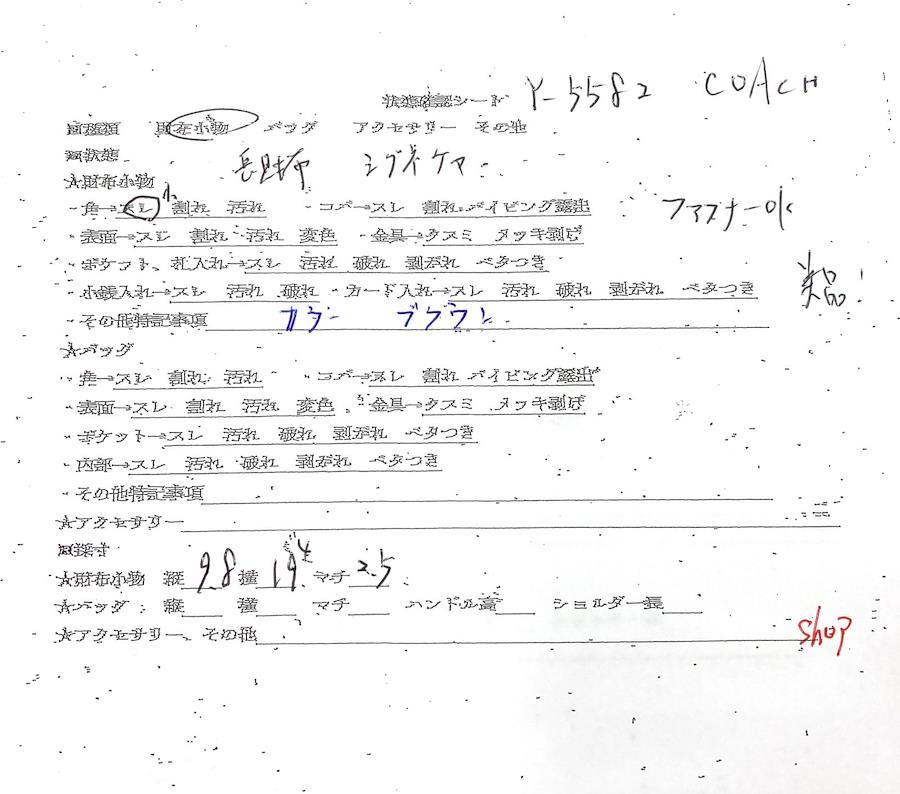 状態確認シート Y-5582 COACH
□種類 財布小物 バッグ アクセサリー その他
□状態
長財布 シグネチャー
☆財布小物
・角→スレ 割れ 汚れ ・コバ→スレ 割れ パイピング露出 ファスナーOK
小
・表面→スレ 割れ 汚れ 変色 ・金具→クスミ メッキ剥げ
・ポケット、札入れ→スレ 汚れ 破れ 剥がれ ベタつき
・小銭入れ→スレ 汚れ 破れ ・カード入れ→スレ 汚れ 破れ 剥がれ ベタつき
美品!
・その他特記事項 カラー ブラウン
☆バッグ
・角→スレ 割れ 汚れ ・コバ→スレ 割れ パイピング露出
・表面→スレ 割れ 汚れ 変色 ・金具→クスミ メッキ剥げ
・ポケット→スレ 汚れ 破れ 剥がれ ベタつき
・内部→スレ 汚れ 破れ 剥がれ ベタつき
・その他特記事項
☆アクセサリー
□採寸
☆財布小物 縦 9.8 横 19.4 マチ 2.5
☆バッグ 縦 横 マチ ハンドル高 ショルダー長
☆アクセサリー、その他
SHOP